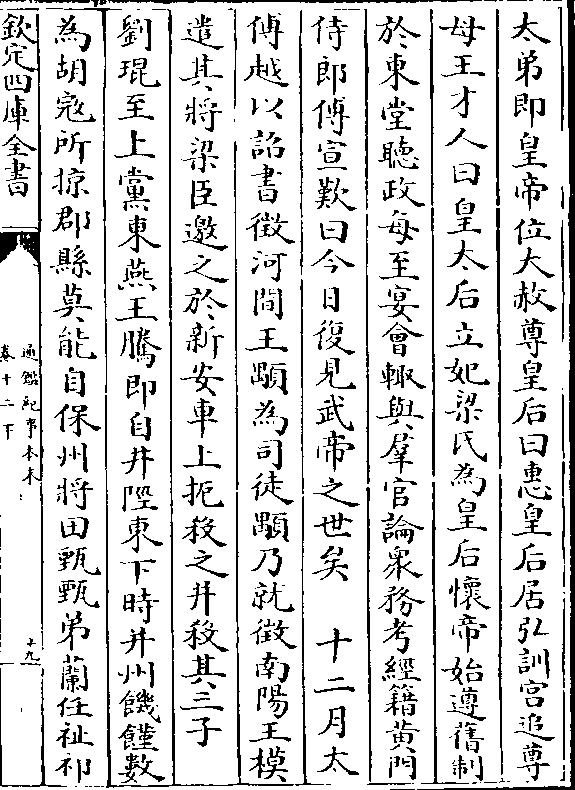 太弟即皇帝位大赦尊皇后曰惠皇后居弘訓宮追尊
母王才人曰皇太后立妃梁氏為皇后懷帝始遵舊制
於東堂聽政每至宴會輒與羣官論衆務考經籍黄門
侍郎傅宣歎曰今日復見武帝之世矣　十二月太
傅越以詔書徴河間王顒為司徒顒乃就徴南陽王模
遣其將梁臣邀之於新安車上扼殺之并殺其三子
劉琨至上黨東燕王騰即自井陘東下時并州饑饉數
為胡冦所掠郡縣莫能自保州將田甄甄弟蘭任祉祁
欽定四庫全書
通鑑紀事本末
卷十二下
十九